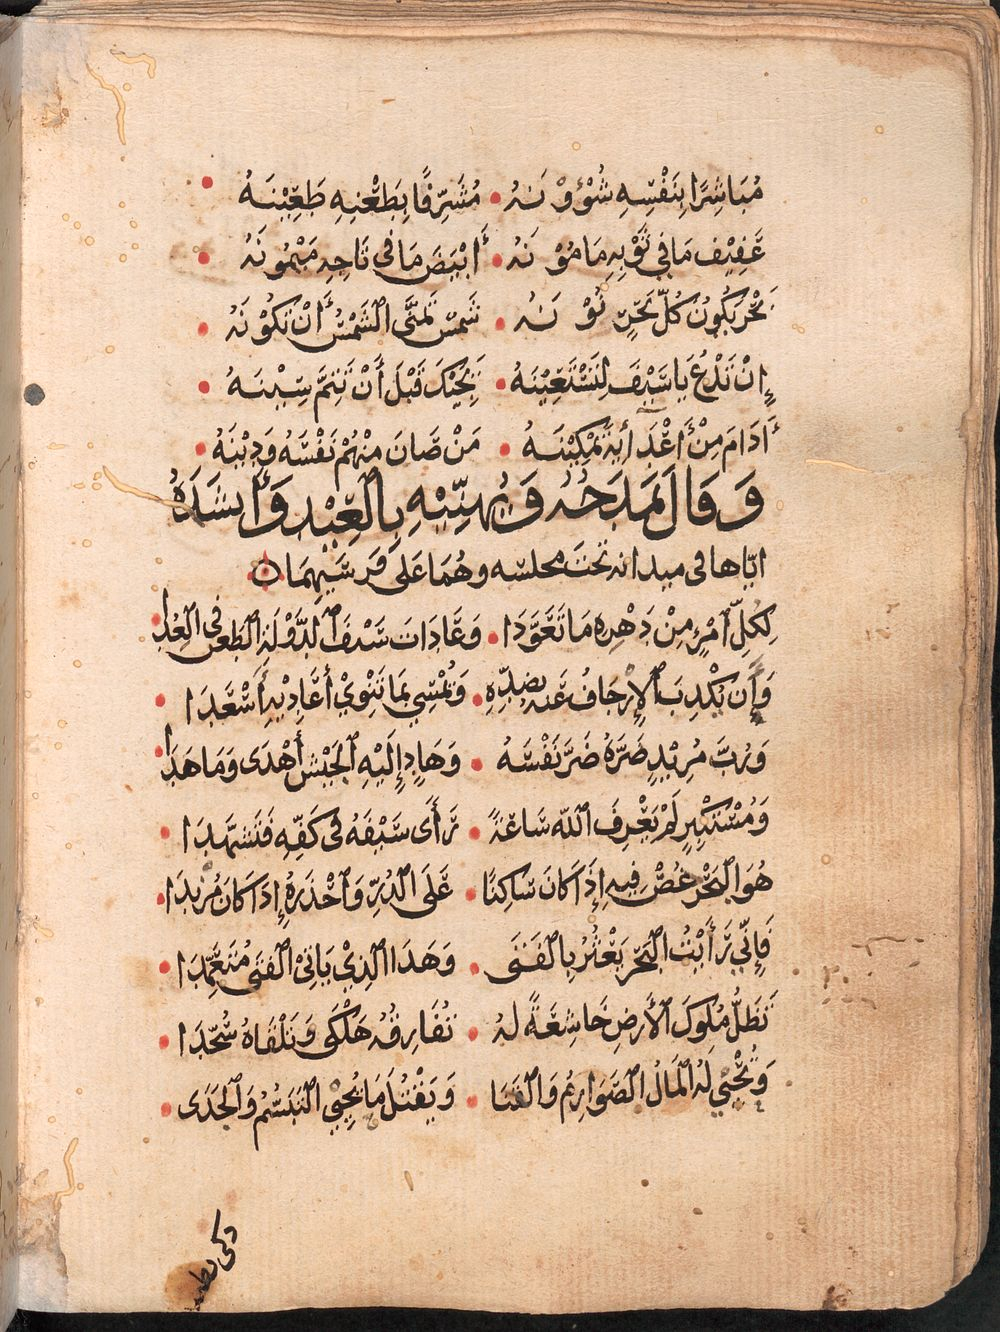 مُبَاشِرًا بِنَفْسِهِ شُؤُوْنَهُ • مُشَرِّفًا بِطَعْنِهِ طَعِيْنَهُ •
عَفِيْفَ مَا فِي ثَوْبِهِ مَامُوْنَهُ • أَبْيَضَ مَا فِي تَاجِهِ مَيْمُونَهُ •
بَحْرٌ يَكُونُ كُلُّ بَحْرٍ نُوْنَهُ • شَمْسٌ تَمَنَّى الشَّمْسُ أَنْ تَكُوْنَهُ •
إِنْ تَدْعُ يَا سَيْفُ لِتَسْتَعِيْنَهُ • يُجِبْكَ قَبْلَ أَنْ تُتِمَّ سِيْنَهُ •
أَدَامَ مِنْ أَعْدَائِهِ تَمْكِيْنَهُ • مَنْ صَانَ مِنْهُمْ نَفْسَهُ وَدِيْنَهُ •
وَقَالَ يَمْدَحُهُ وَيُهَنِّيْهِ بِالْعِيْدِ وَأَنْشَدَهُ
ايّاها في ميدانه تحت مجلسه وهُمَا عَلَى فَرَسَيْهِمَا
لِكُلِّ امْرِئٍ مِنْ دَهْرِهِ مَا تَعَوَّدَا • وَعَادَاتُ سَيْفِ الدَّوْلَةِ الطَعْنُ فِي الْعِدَا •
وَأَنْ يُكْذِبَ الإِرْجَافُ عَنْهُ بِضِدِّهِ • وَيُمْسِي بِمَا تَنْوِيْ أَعَادِيْهِ أَسْعَدَا •
وَرُبَّ مُرِيْدٍ ضَرَّهُ ضَرَّ نَفْسَهُ • وَهَادٍ إِلَيْهِ الْجَيْشَ أَهْدَى وَمَا هَدَا •
وَمُسْتَكْبِرٍ لَمْ يَعْرِفِ اللّهَ سَاعَةً • رَأَى سَيْفَهُ في كَفِّهِ فَتَشَهَّدَا •
هُوَ الْبَحْرُ غُصْ فِيهِ إِذَا كَانَ سَاكِنًا • عَلَى الدُّرِّ وَاحْذَرْهُ إِذَا كَانَ مُزْبِدَا •
فَإِنّي رَأَيْتُ الْبَحْرَ يَعْثُرُ بِالْفَتَى • وَهَذَا الَّذِيْ يَاتِيْ الْفَتَى مُتَعَمِّدَا •
تَظَلُّ مُلُوكُ الأَرْضِ خَاشِعَةً لَهُ • تُفَارِقُهُ هَلْكَى وَتَلْقَاهُ سُجَّدَا •
وَتُحْيِي لَهُ الْمَالَ الصَّوَارِمُ وَالْقَنَا • وَيَقْتُلُ مَا يُحْيِي التَّبَسُّمُ وَالْجَدَى •
ذكي تظنيه